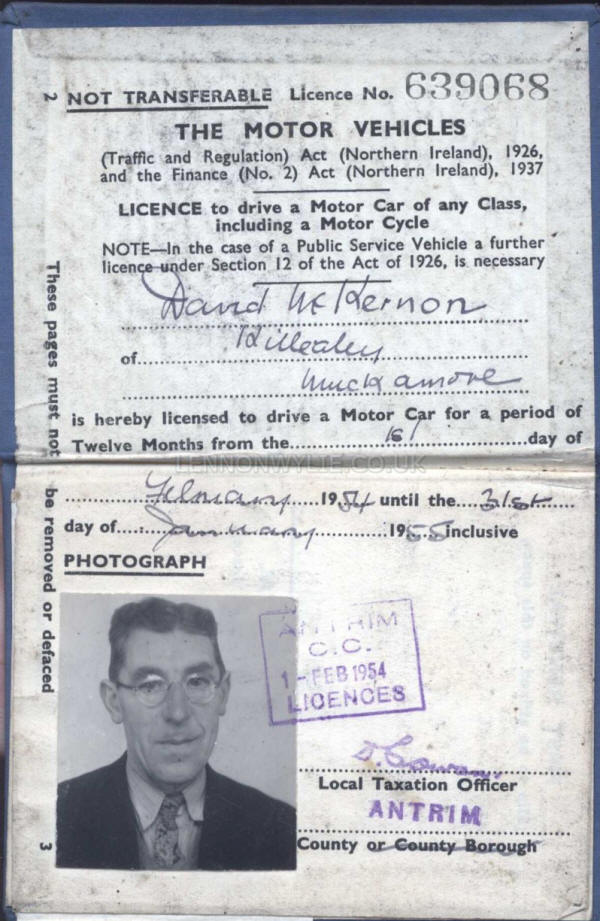 2 NOT TRANSFERABLE Licence No. 639068
THE MOTOR VEHICLES
(Traffic and Regulation) Act (Northern Ireland), 1926,
and the Finance (No. 2) Act (Northern Ireland), 1937
LICENCE to drive a Motor Car of any Class,
including a Motor Cycle
NOTE—In the case of a Public Service Vehicle a further
licence under Section 12 of the Act of 1926, is necessary
David McKernon
of Killealey
Muckamore
is hereby licensed to drive a Motor Car for a period of
Twelve Months from the 1st day of
LENNONWYLIE.CO.UK
February 1954 until the 31st
day of January 1955 inclusive
These pages must not be removed or defaced
PHOTOGRAPH
ANTRIM
C.C.
1 - FEB 1954
LICENCES
Local Taxation Officer
ANTRIM
3 County or County Borough